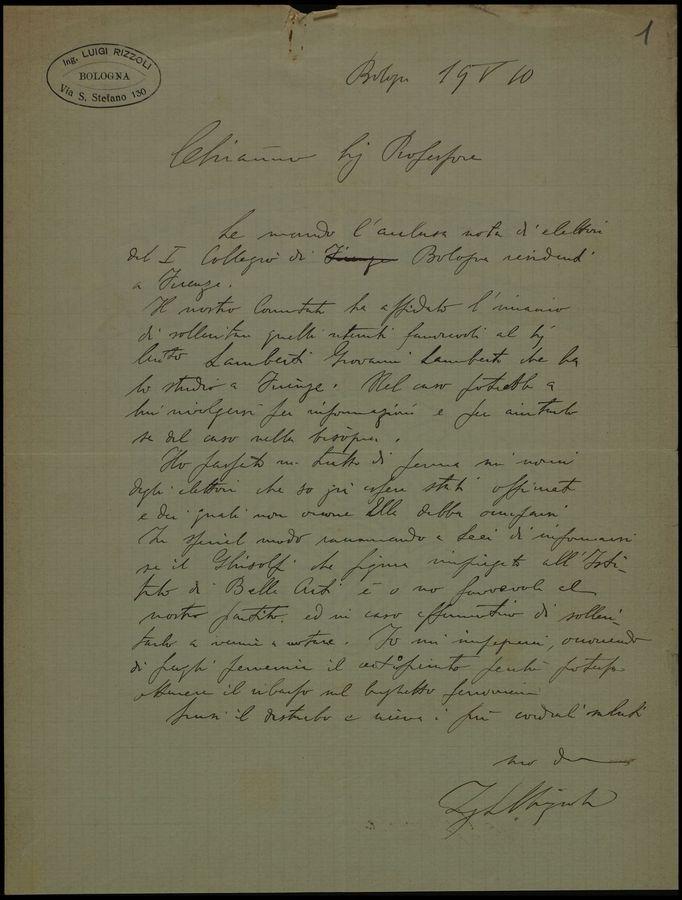 1
Ing. LUIGI RIZZOLI
BOLOGNA
Via S. Stefano 130
Bologna 19 V 10
Chiarmo Sig Professore
Le mando l'acclusa nota di elettori
del I Collegio di Firenze Bologna residenti
a Firenze.
Il nostro Comitato ha affidato l'incarico
di sollecitare quelli ritenuti favorevoli al Sig
Lamberti Giovanni Lamberti che ha
lo studio a Firenze. Nel caso potrebbe a
lui rivolgersi per informazioni e per aiutarlo
se del caso nella bisogna.
Ho fatto un tratto di penna sui nomi
degli elettori che so già essere stati
e dei quali non occorre Ella debba
In special modo raccomando a Lei di informarsi
se il Ghisolfi che figura impiegato all'Isti-
tuto di Belle Arti è o no favorevole al
nostro partito, ed in caso affermativo di solleci-
tarlo a venire a votare. Io mi impegnerei, occorrendo
di fargli pervenire il perché potesse
ottenere il ribasso sul biglietto ferroviario
Scusi il disturbo e riceva i più cordiali saluti
suo